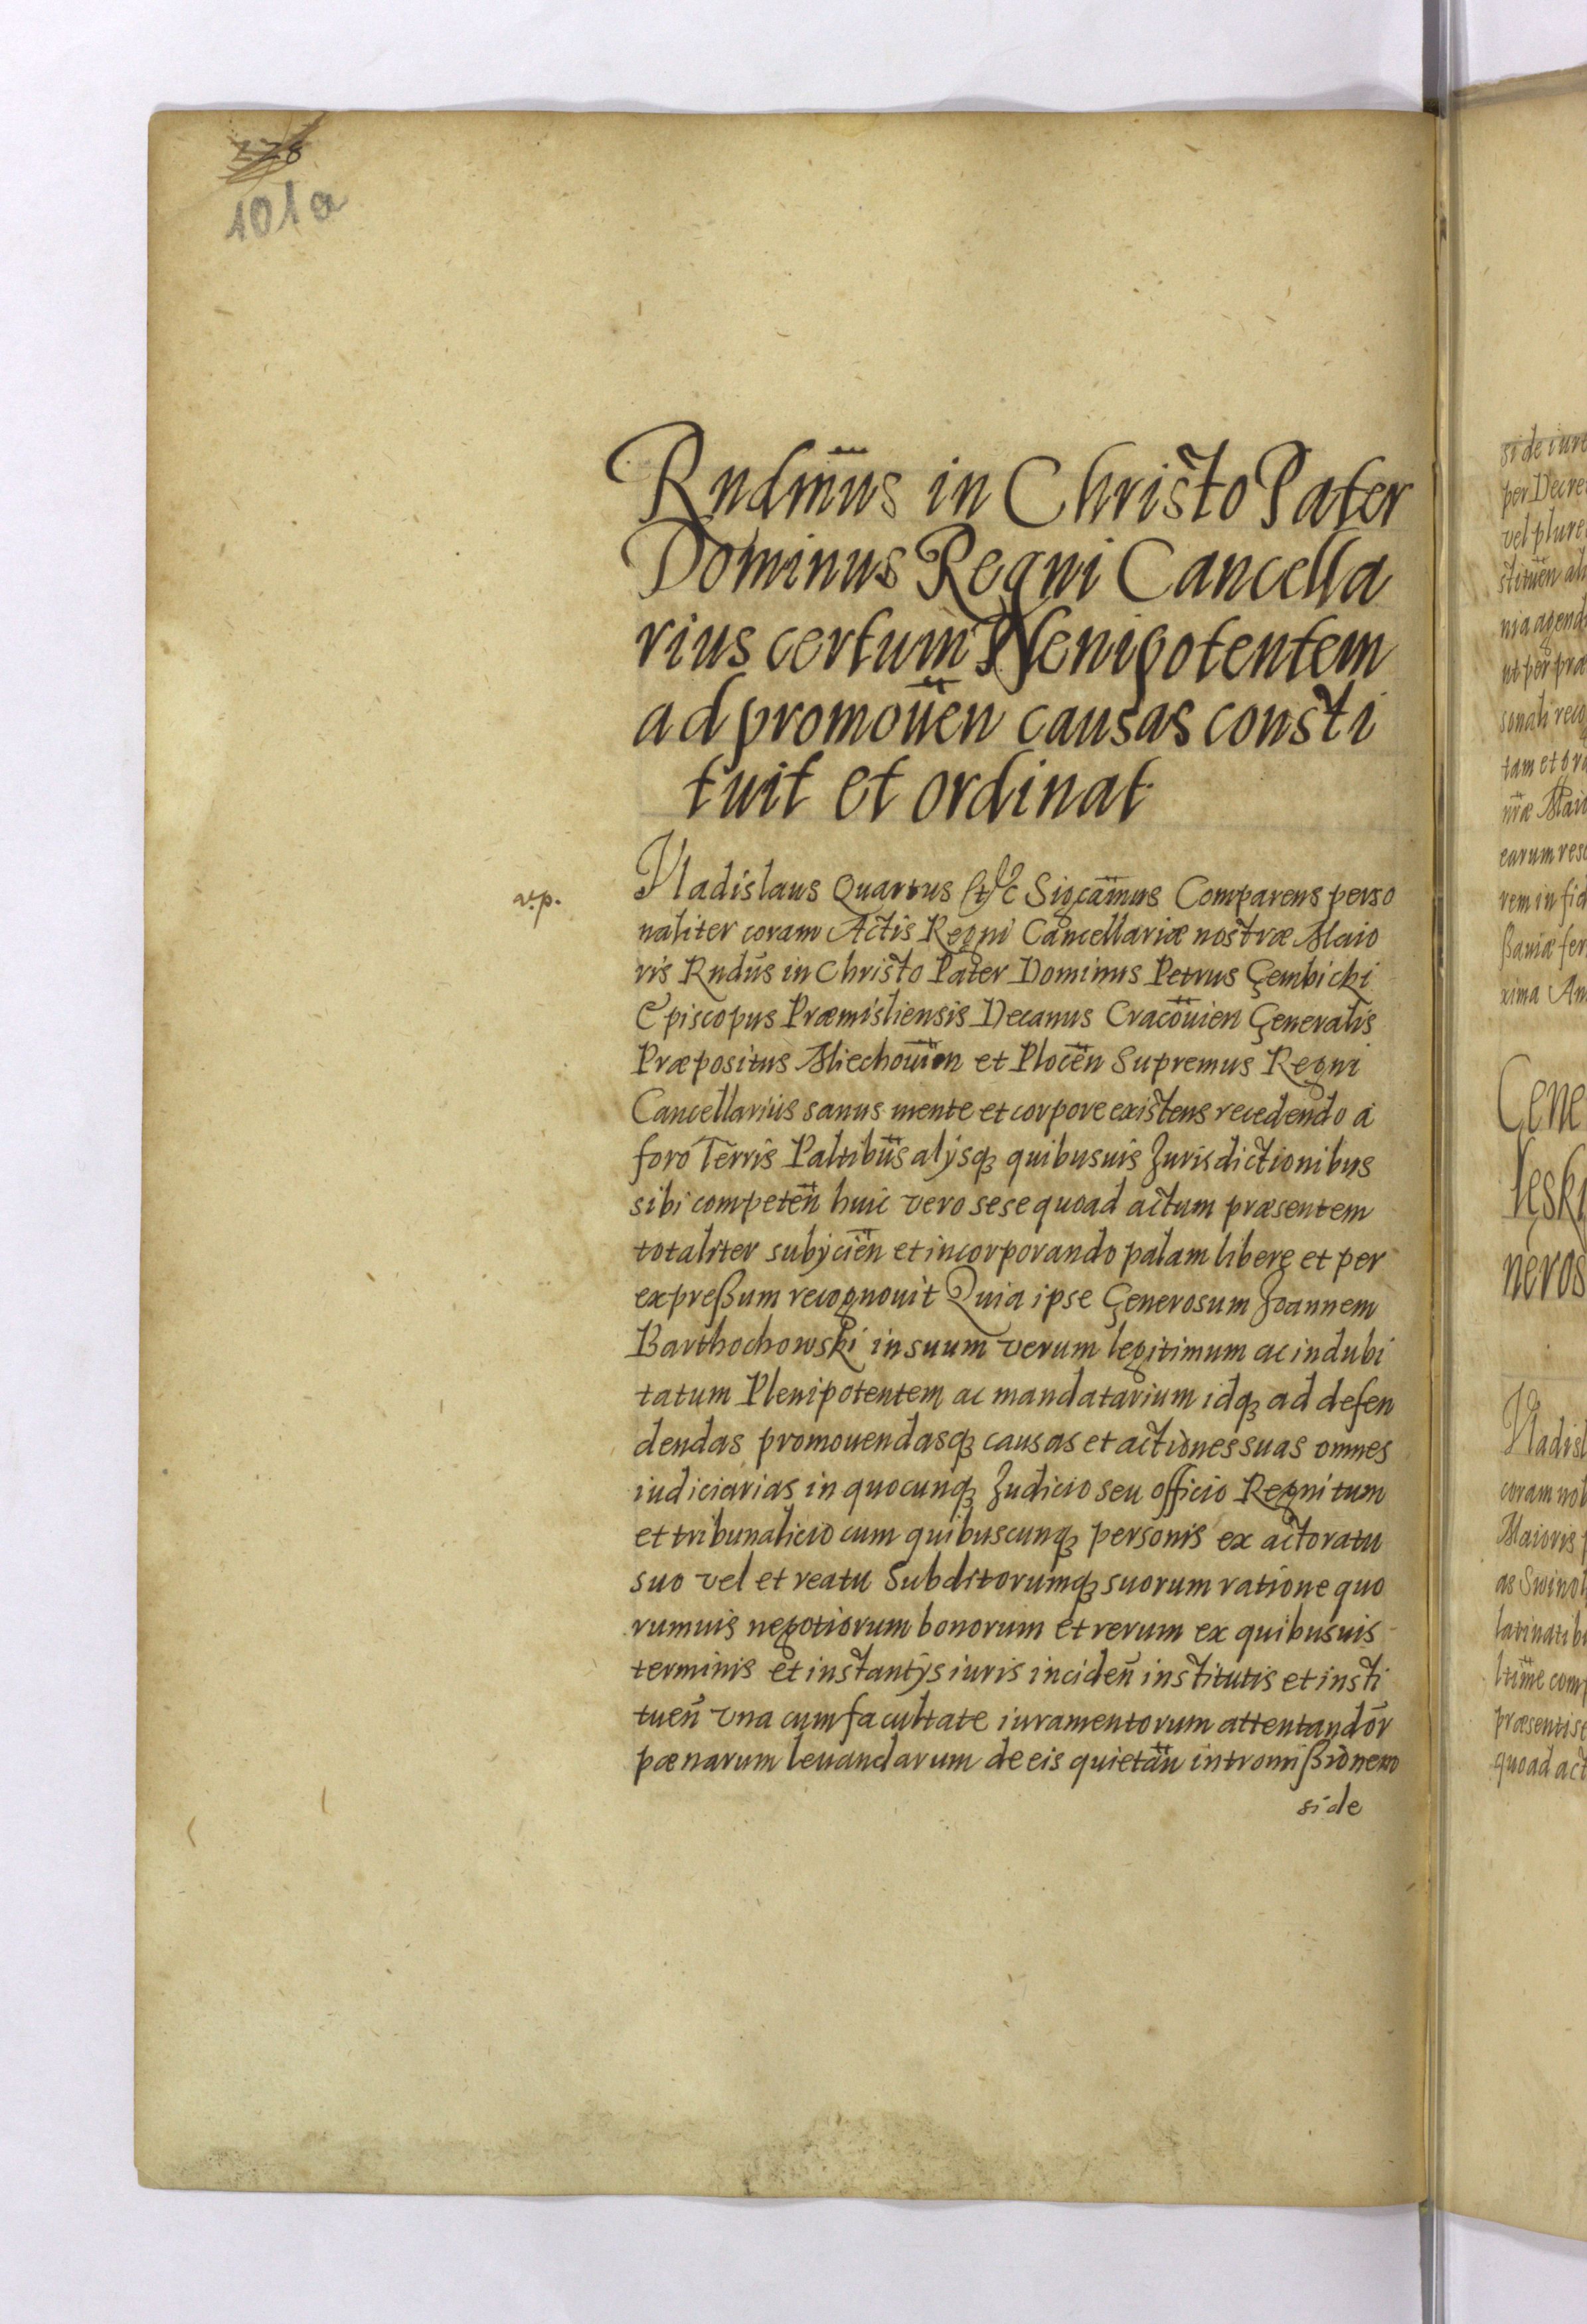 228
101a
Rndm̃us in Christo Pater
Dominus Regni Cancella
rius certum Plenipotentem
ad promoueñ causas consti
tuit et ordinat
a.p.
Vladislaus Quartus etc Sigcam̃us Comparens perso
naliter coram Actis Regni Cancellariæ nostræ Maio
ris Rndũs in Christo Pater Dominus Petrus Gembicki
Episcopus Præmisliensis Decanus Cracouieñ Generalis
Præpositus Miechouieñ et Ploceñ Supremus Regni
Cancellarius sanus mente et corpore existens recedendo a
foro Terris Paltibũs alÿsq3 quibusuis Jurisdictionibus
sibi competeñ huic vero sese quoad actum præsentem
totaliter subÿcieñ et incorporando palam libere et per
expreßum recognouit Quia ipse Generosum Joannem
Barthochowski in suum verum legitimum ac indubi
tatum Plenipotentem ac mandatarium idq3 ad defen
dendas promouendasq3 causas et actiones suas omnes
iudiciarias in quocunq3 Judicio seu officio Regni tum
et tribunalicio cum quibuscunq3 personis ex actoratu
suo vel et reatu Subditorumq3 suorum ratione quo
rumuis negotiorum bonorum et rerum ex quibusuis
terminis et instantÿs iuris incideñ institutis et insti
tueñ vna cum facultate iuramentorum attentandor̃
pænarum leuandarum de eis quietañ intromißionem
si de
si de iure
per Decre
vel plure
stitueñ ali
nia agend
ut per præ
sonali reco
tam et gra
nr̃æ Maio
earum res
rem in fid
ßauiæ fer
xima Am
Gene
leski
neros
Vladisl
coram nob
Maioris p
as Swinol
latinatib
ltim̃e com
præsentis
quoad act